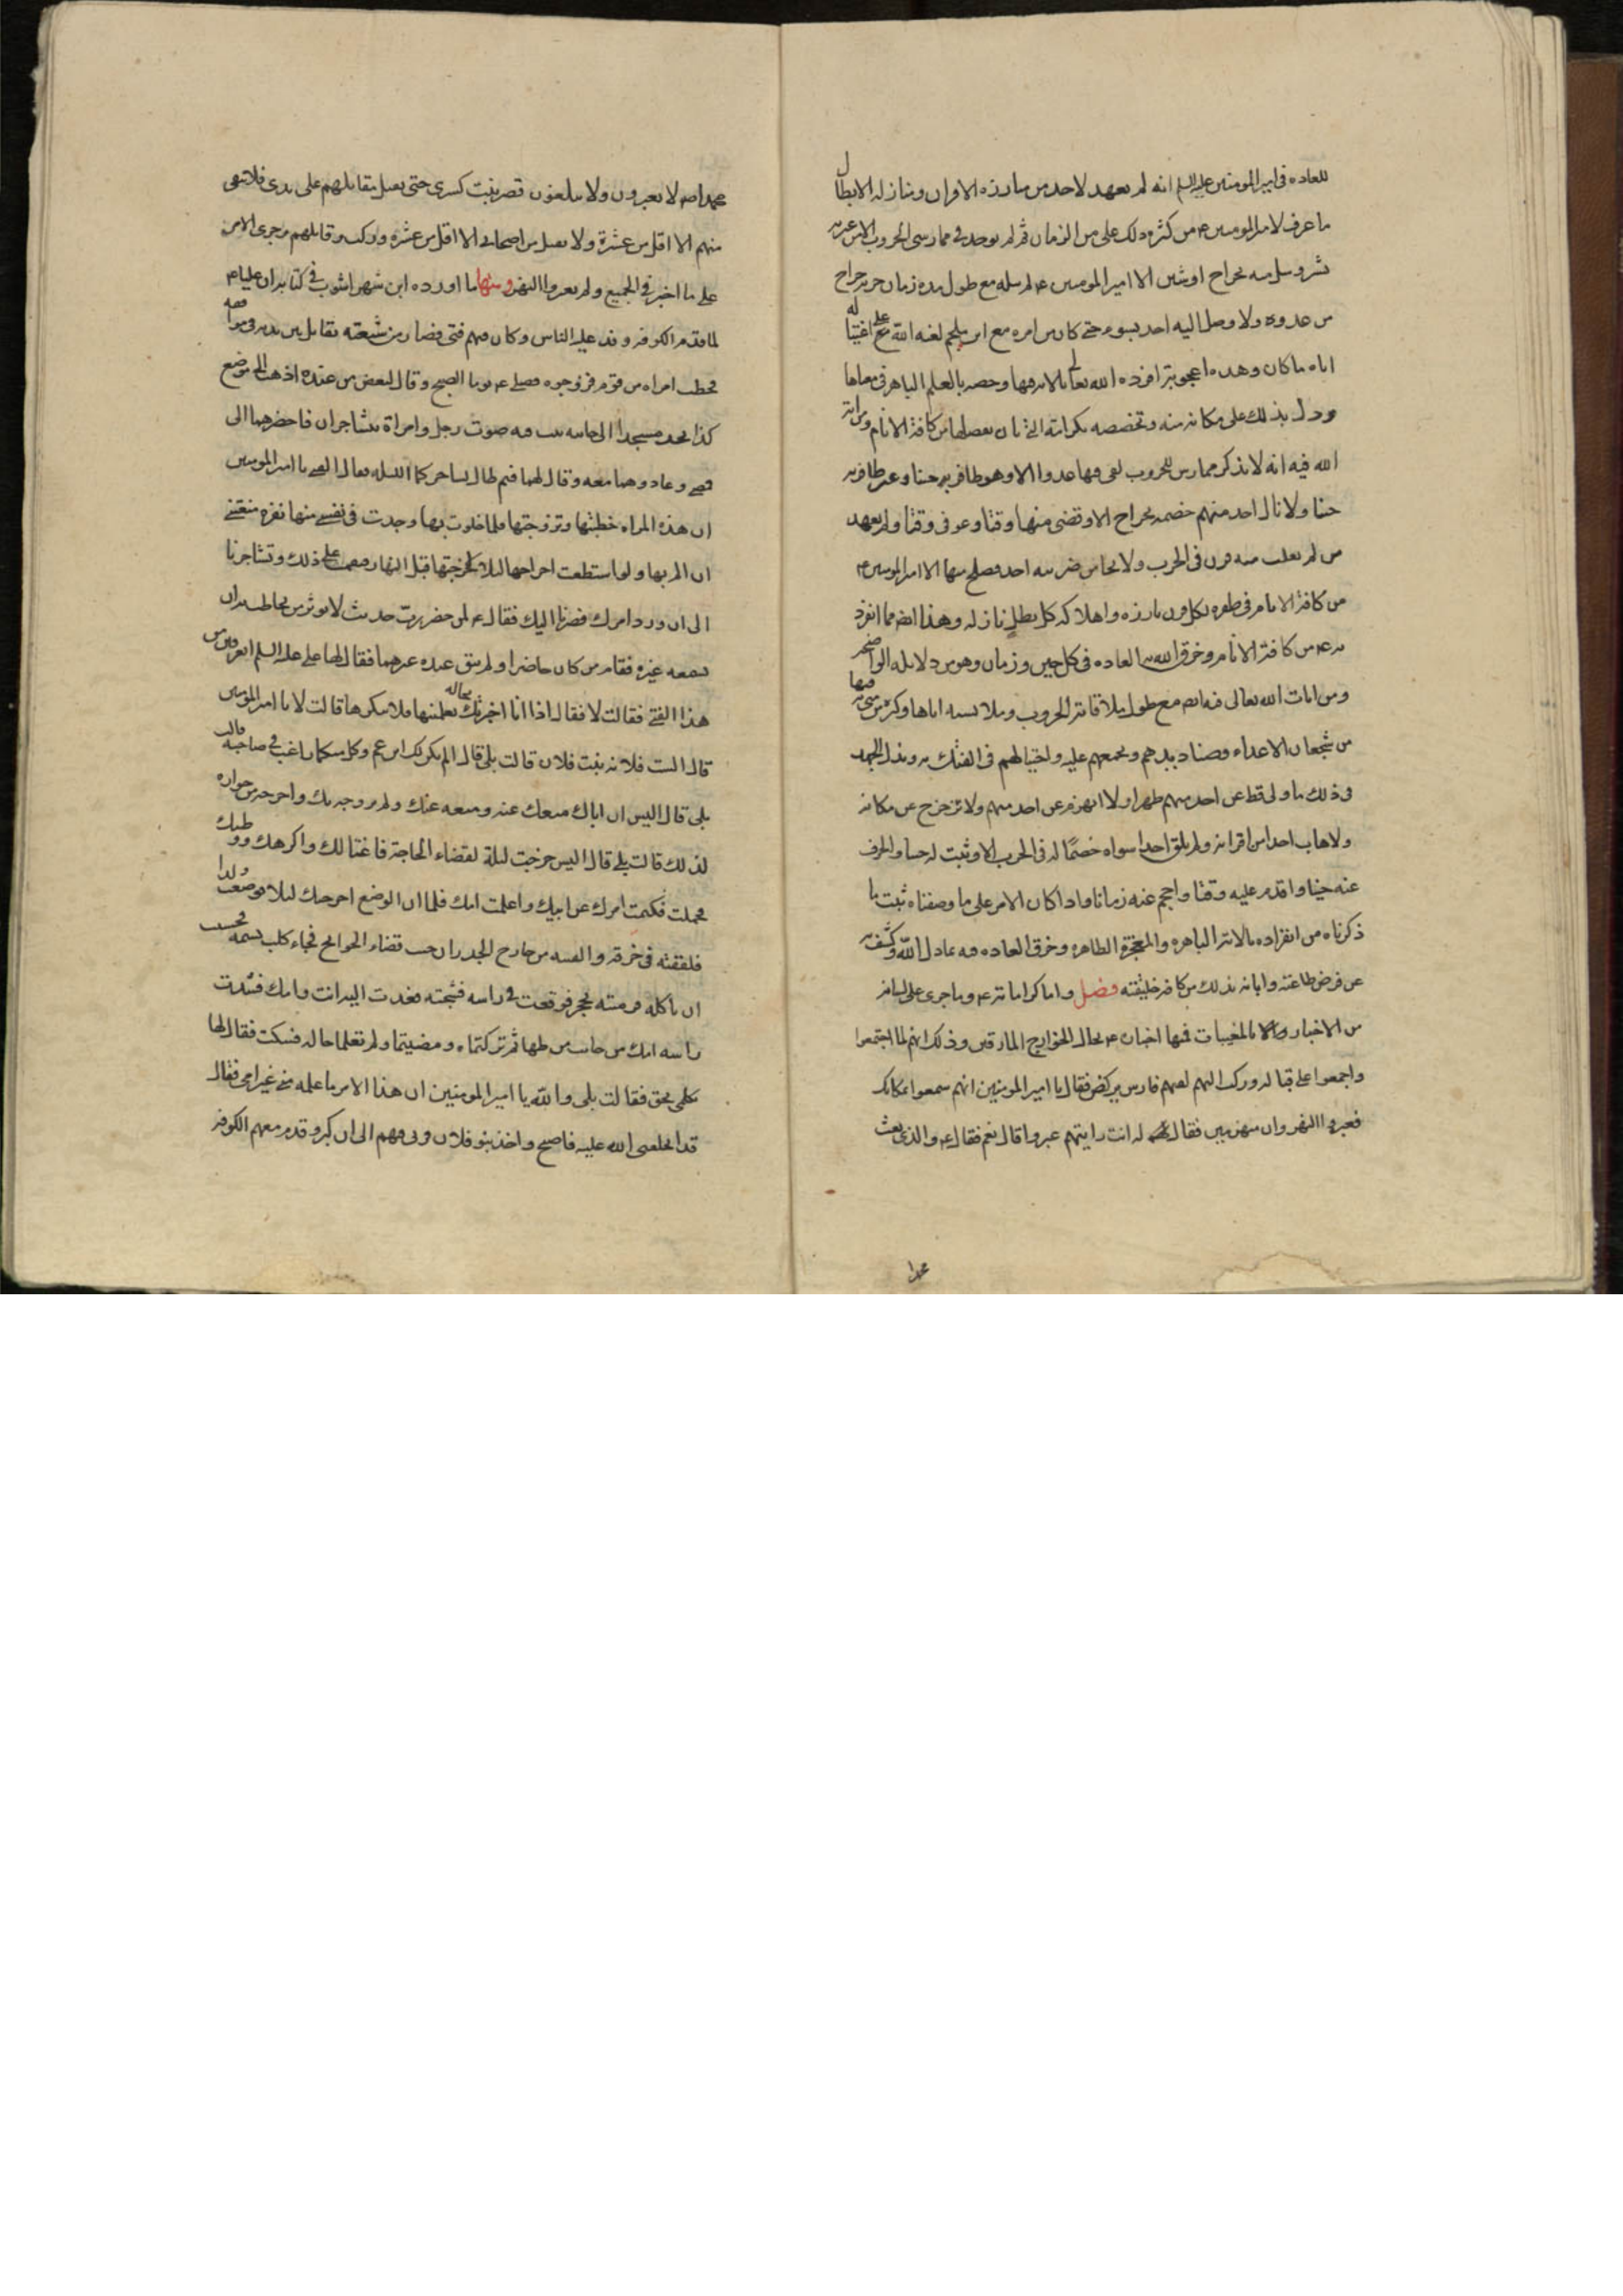 للعاده في امير المومنين عليه السلم انه لم يعهد لاحد من مبارزه الاقران ومنازله الابطال
ما عرف لامير المومنين ع من كثره ذلك على مر الزمان ثم لم يوجد في ممارسي الحروب الا من عرته
بشر ونيل منه بجراح او شين الا امير المومنين ع لم ينله مع طول مده زمان حربه جراح
من عدوه ولا وصل اليه احد بسوء حتى كان من امره مع ابن ملجم لعنه الله على اغتياله
اياه ما كان وهذه اعجوبة افرده الله تعالى بالايه فيها وخصه بالعلم الباهر في معناها
ودل بذلك على مكانه منه وتخصصه بكرامته التي بان بفضلها من كافة الانام ومن ايات
الله فيه انه لا يذكر ممارس للحروب لقي فيها عدوا الا وهو ظافر به حينا وغير ظافر به
حينا ولا نال احد منهم خصمه بجراح الا وقضى منها وقتا وعوفى وقتا ولم يعهد
من لم يفلت منه قرن في الحرب ولا نجا من ضربته احد فصلح منها الا امير المومنين ع
من كافة الانام في ظفره بكل قرن بارزه واهلاكه كل بطل نازله وهذا ايضا مما انفرد
به ع من كافة الانام وخرق الله به العاده في كل حين وزمان وهو من دلايله الواضحه
ومن ايات الله تعالى فيه ايضا مع طول ملاقاته الحروب وملابسته اياها وكثره من مني به فيها
من شجعان الاعداء وصناديدهم وتجمعهم عليه واحتيالهم في الفتك به وبذل الجهد
في ذلك ما ولى قط عن احد منهم ظهرا ولا انهزم عن احد منهم ولا تزحزح عن مكانه
ولا هاب احدا من اقرانه ولم يلق احدا سواه خصما له في الحرب الا وثبت له حينا وانحرف
عنه حينا واقدم عليه وقتا واحجم عنه زمانا واذا كان الامر على ما وصفناه ثبت ما
ذكرناه من انفراده بالاية الباهره والمعجزة الظاهره وخرق العاده فيه بما دل الله وكشف به
عن فرض طاعته وابانه بذلك من كافة خليقته فصل واما كراماته ع وما جرى على لسانه
من الاخبار بالمغيبات فمنها اخباره ع بحال الخوارج المارقين وذلك انهم لما اجتمعوا
واجمعوا على قتاله وركب اليهم لقيهم فارس يركض فقال يا امير المومنين انهم سمعوا بمكانك
فعبروا النهروان منهزمين فقال له انت رايتهم عبروا قال نعم فقال ع والذي بعث
محمدا
محمدا صه لا يعبرون ولا يبلغون قصر بنت كسرى حتى يقتل مقاتلهم على يدي فلا يبقى
منهم الا اقل من عشرة ولا يقتل من اصحابي الا اقل من عشره وركب وقاتلهم وجرى الامر
على ما اخبر في الجميع ولم يعبروا النهر ومنها ما اورده ابن شهراشوب في كتابه ان عليا ع
لما قدم الكوفه وفد عليه الناس وكان فيهم فتى فصار من شيعته يقاتل بين يديه في مواقفه
فخطب امراه من قوم فزوجوه فصلى ع يوما الصبح وقال لبعض من عنده اذهب الى موضع
كذا تجد مسجدا الى جانبه بيت فيه صوت رجل وامراة يتشاجران فاحضرهما الى
فمضى وعاد وهما معه وقال لهما فيم طال تشاجركما الليله فقال الفتى يا امير المومنين
ان هذه المراه خطبتها وتزوجتها فلما خلوت بها وجدت في نفسي منها نفره منعتني
ان الم بها ولو استطعت اخراجها ليلا لاخرجتها قبل النهار فنقمت على ذلك وتشاجرنا
الى ان ورد امرك فصرنا اليك فقال ع لمن حضره رب حديث لا يوثر من يخاطب به ان
يسمعه غيره فقام من كان حاضرا ولم يبق عنده غيرهما فقال لها على عليه السلم اتعرفين من
هذا الفتى فقالت لا فقال اذا انا اخبرتك بحاله تعلمينها فلا تنكريها قالت لا يا امير المومنين
قال الست فلانه بنت فلان قالت بلى قال الم يكن لك ابن عم وكل منكما راغب في صاحبه قالت
بلى قال اليس ان اباك منعك عنه ومنعه عنك ولم يزوجه بك واخرجه من جواره
لذلك قالت بلى قال اليس خرجت ليلة لقضاء الحاجة فاغتالك واكرهك ووطئك
فحملت فكتمت امرك عن ابيك واعلمت امك فلما ان الوضع اخرجتك ليلا فوضعت ولدا
فلففته في خرقه والقيته من خارج الجدران حيث قضاء الحوائج فجاء كلب يشمه فخشيت
ان ياكله فرمته بحجر فوقعت في راسه فشجته فعدت اليه انت وامك فشدت
راسه امك من جانب مرطها ثم تركتماه ومضيتما ولم تعلما حاله فسكتت فقال لها
تكلمي بحق فقالت بلى والله يا امير المومنين ان هذا الامر ما علمه مني غير امي فقال
قد اطلعني الله عليه فاصبح واخذ بنو فلان وربي فيهم الى ان كبر وقدم معهم الكوفه